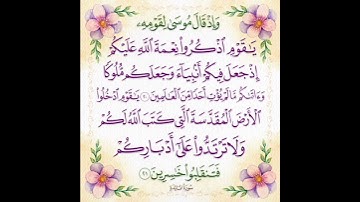 وَإِذْ قَالَ مُوسَىٰ لِقَوْمِهِ
يَٰقَوْمِ اذْكُرُوا۟ نِعْمَةَ اللَّهِ عَلَيْكُمْ
إِذْ جَعَلَ فِيكُمْ أَنۢبِيَآءَ وَجَعَلَكُم مُّلُوكًا
وَءَاتَىٰكُم مَّا لَمْ يُؤْتِ أَحَدًا مِّنَ الْعَٰلَمِينَ ٢٠ يَٰقَوْمِ ادْخُلُوا۟
الْأَرْضَ الْمُقَدَّسَةَ الَّتِي كَتَبَ اللَّهُ لَكُمْ
وَلَا تَرْتَدُّوا۟ عَلَىٰٓ أَدْبَارِكُمْ
فَتَنقَلِبُوا۟ خَٰسِرِينَ ٢١